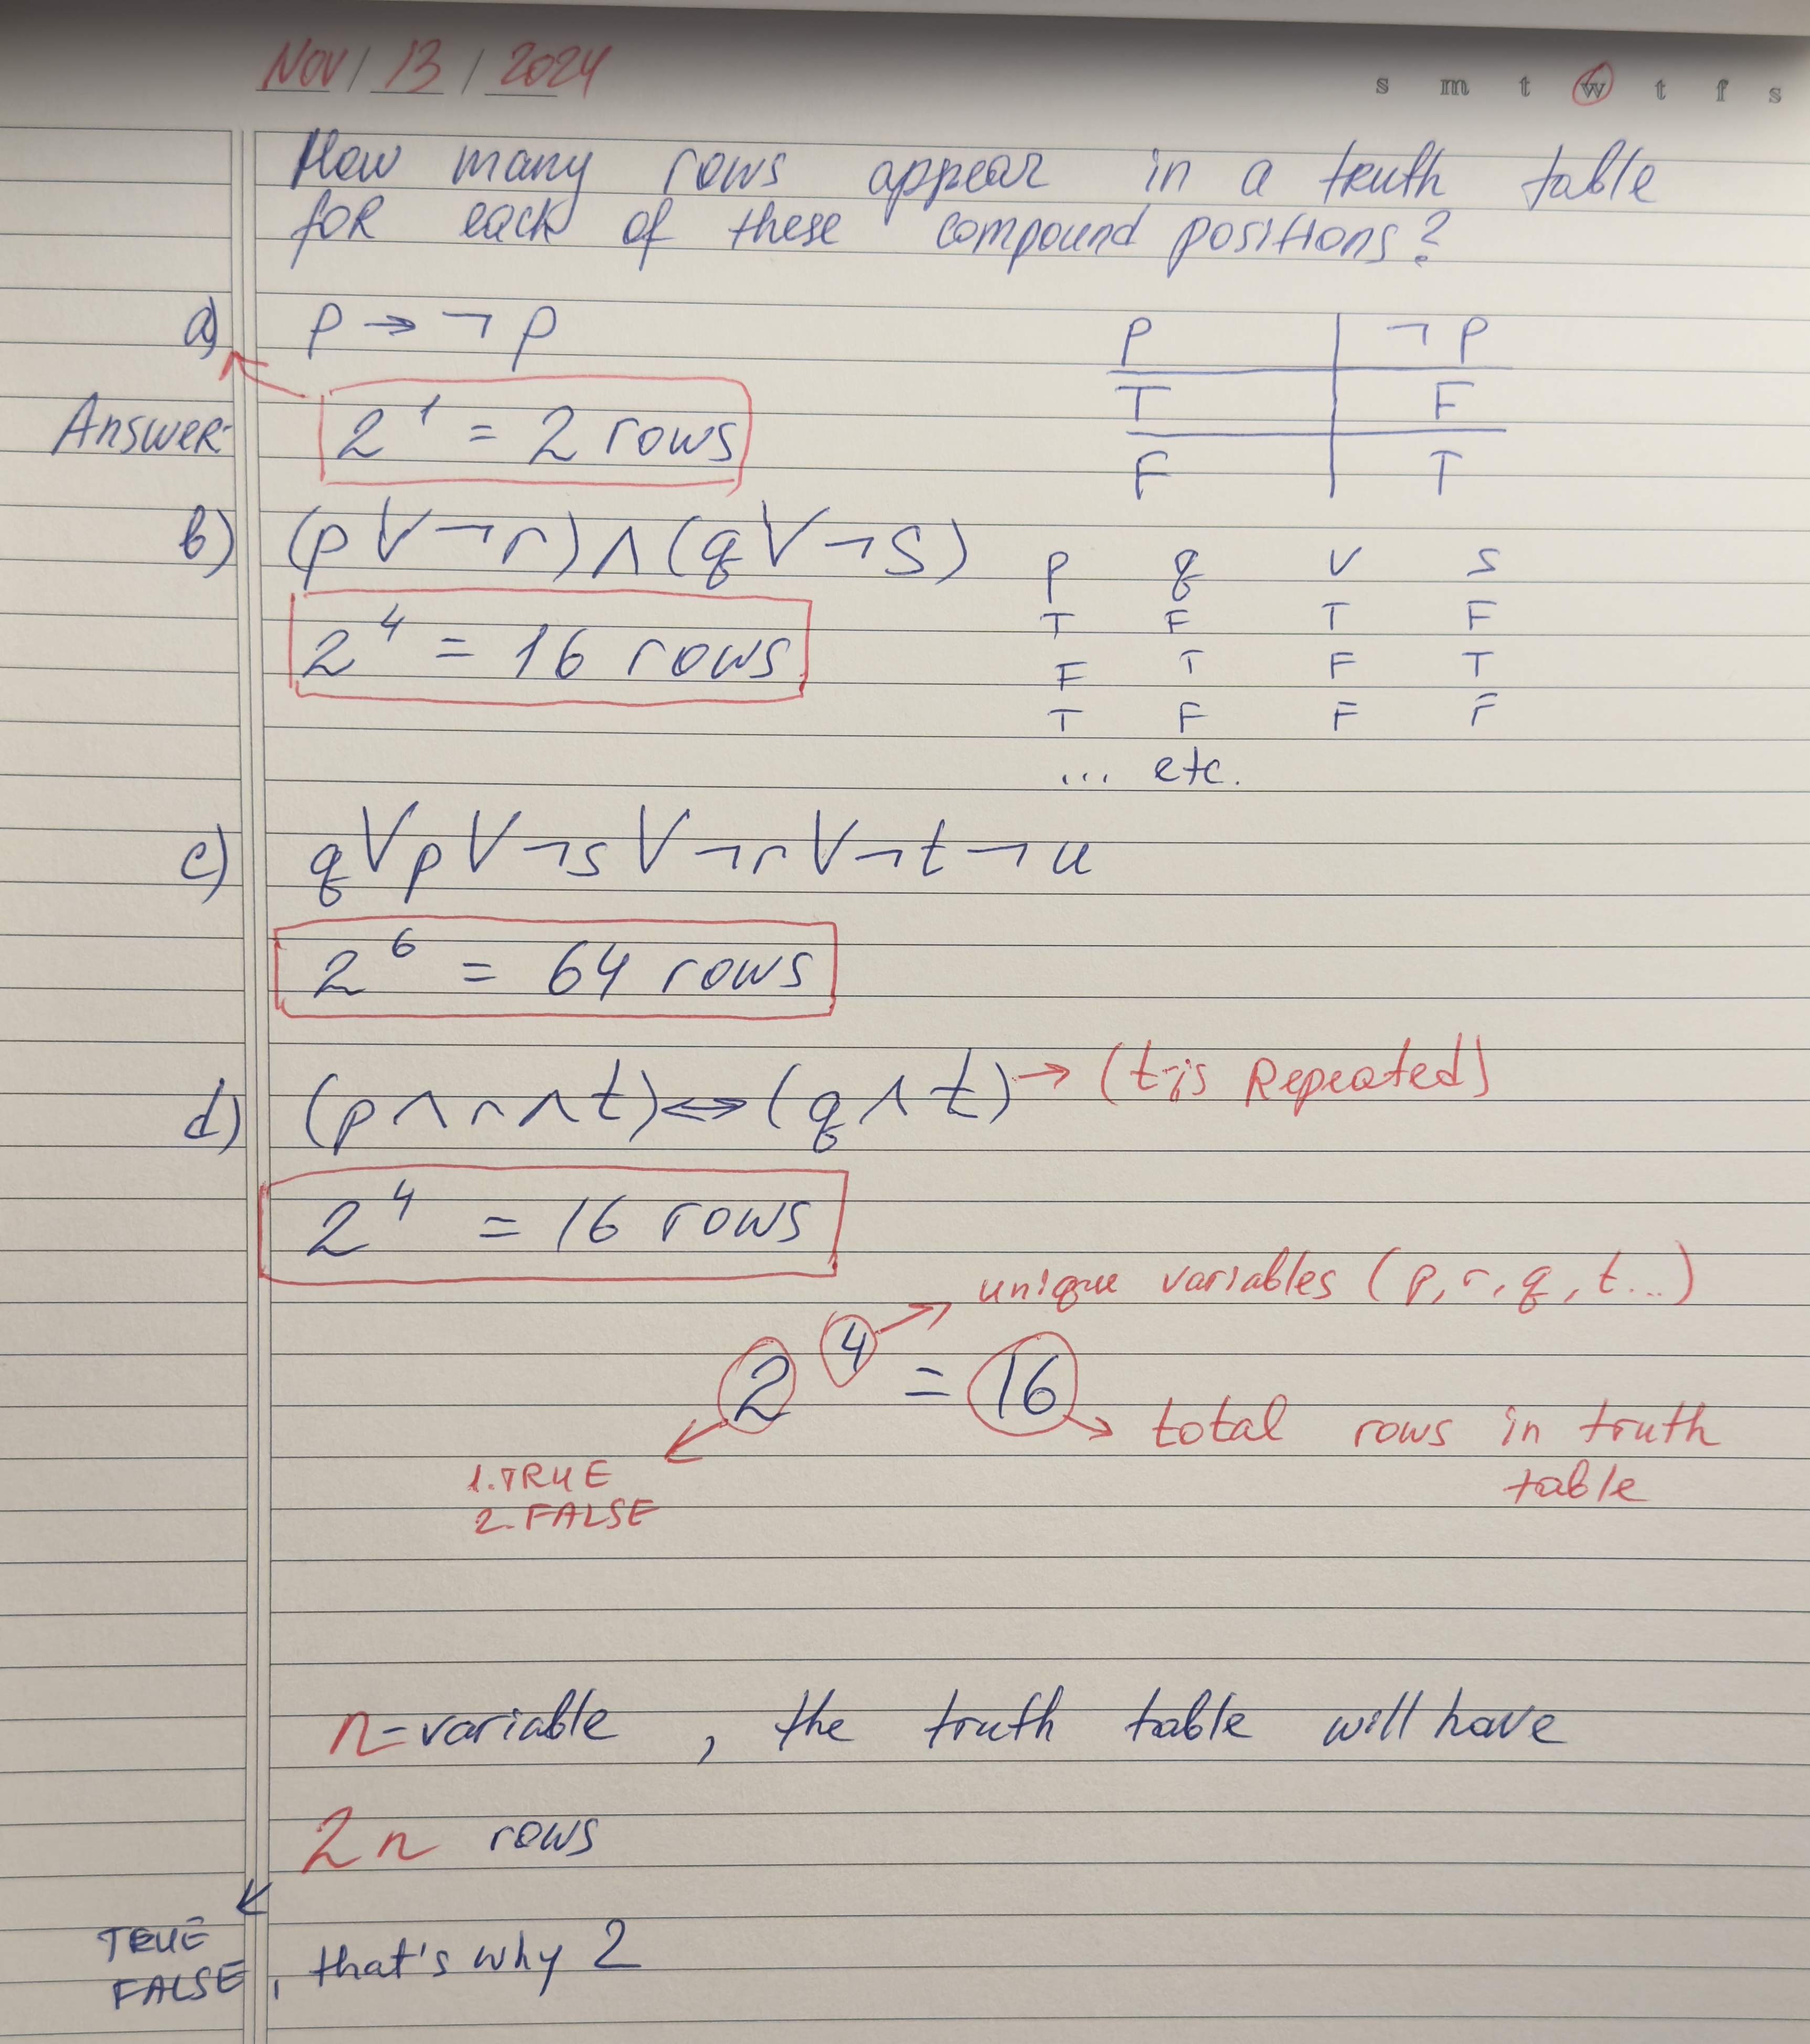 NOV / 13 / 2024
s m t w t f s
How many rows appear in a truth table
for each of these compound positions?
a) p → ¬ p
P | ¬ P
T | F
F | T
Answer: 2^1 = 2 rows
b) (p ∨ ¬r) ∧ (q ∨ ¬s)
2^4 = 16 rows
p q v s
T F T F
F T F T
T F F F
... etc.
c) q ∨ p ∨ ¬s ∨ ¬r ∨ ¬t ¬u
2^6 = 64 rows
d) (p ∧ r ∧ t) ↔ (q ∧ t) → (t is Repeated)
2^4 = 16 rows
unique variables (p, r, q, t...)
2^4 = 16
total rows in truth
table
1. TRUE
2. FALSE
n = variable , the truth table will have
2n rows
TRUE
FALSE, that's why 2